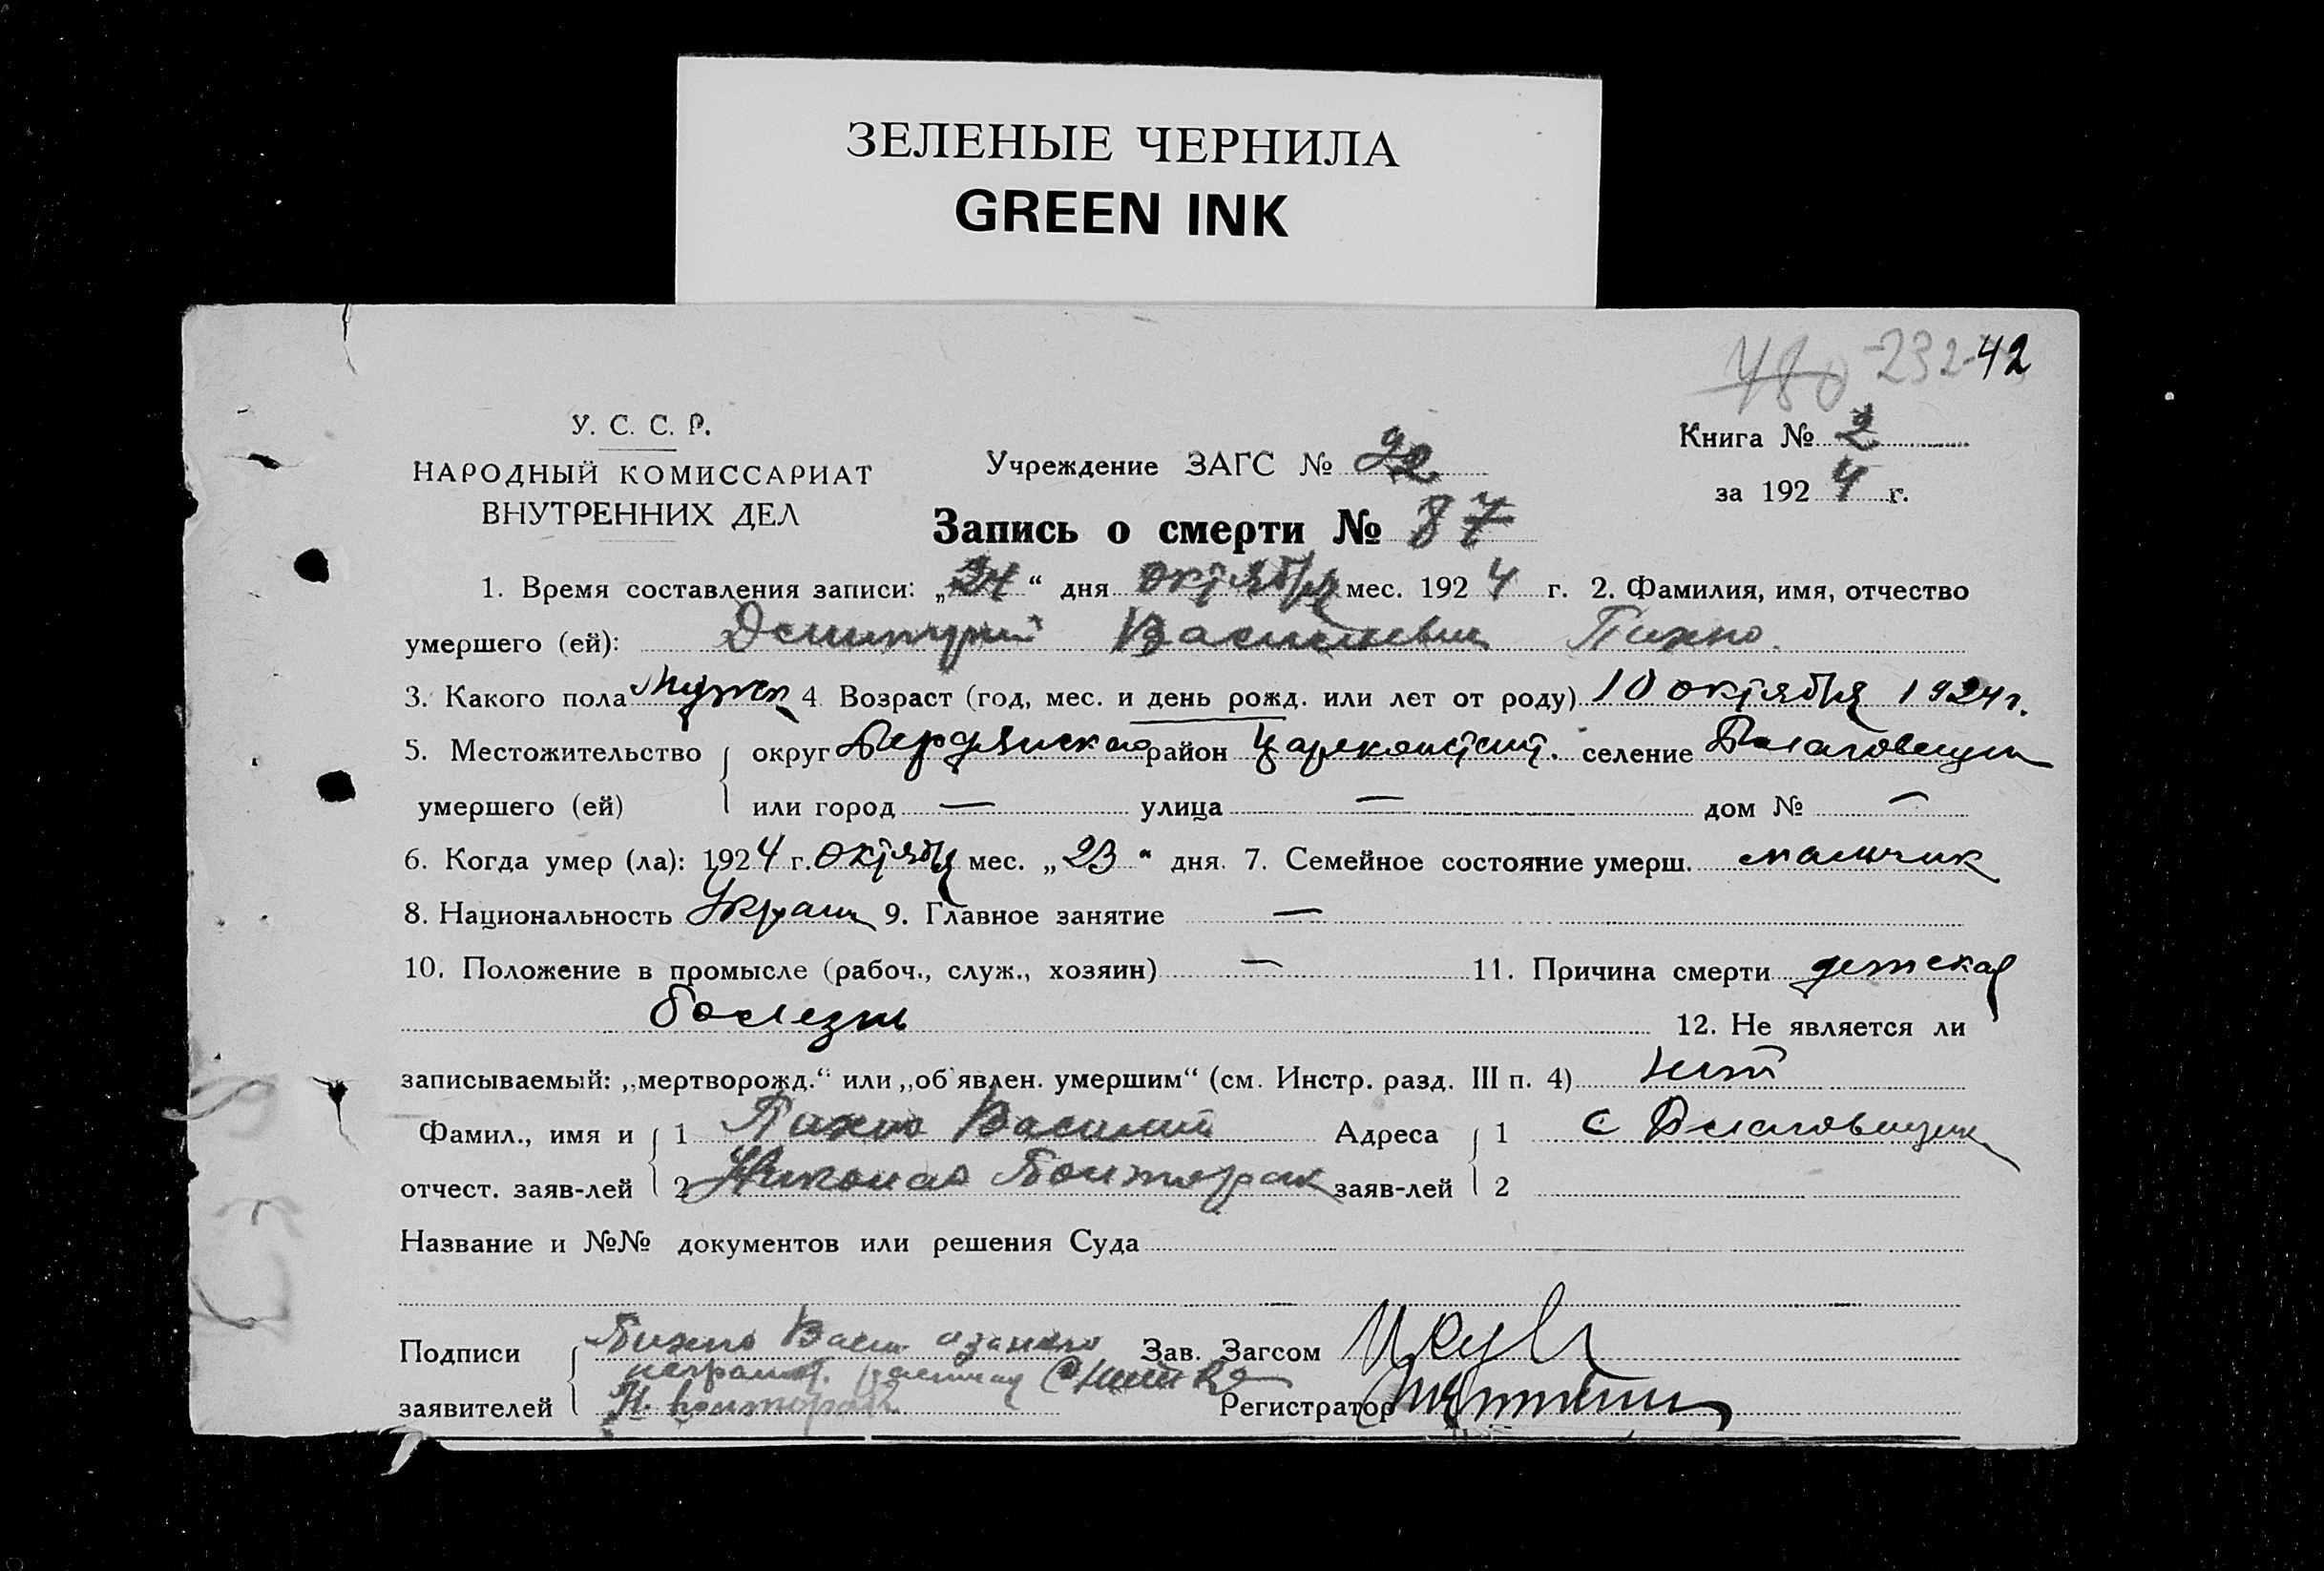 ЗЕЛЕНЫЕ ЧЕРНИЛА
GREEN INK
480 -232- 42
У. С. С. Р.
НАРОДНЫЙ КОМИССАРИАТ
ВНУТРЕННИХ ДЕЛ
Учреждение ЗАГС № 92
Книга № 2
за 1924 г.
Запись о смерти № 87
1. Время составления записи: „24“ дня октября мес. 1924 г. 2. Фамилия, имя, отчество
умершего (ей): Димитрий Васильевич Пихно.
3. Какого пола мужск 4 Возраст (год, мес. и день рожд. или лет от роду) 10 октября 1924 г.
5. Местожительство округ Бердянского район Цареконстант. селение Благовещен
умершего (ей) или город — улица — дом № —
6. Когда умер (ла): 1924 г. октября мес. „23“ дня. 7. Семейное состояние умерш. мальчик
8. Национальность Украин 9. Главное занятие —
10. Положение в промысле (рабоч., служ., хозяин) — 11. Причина смерти детская
болезнь
12. Не является ли
записываемый: „мертворожд.“ или „об'явлен. умершим“ (см. Инстр. разд. III п. 4) нет
Фамил., имя и 1 Пихно Василий Адреса 1 с Благовещен
отчест. заяв-лей 2 Николай заяв-лей 2
Название и №№ документов или решения Суда
Подписи Пихно Васил а за него Зав. Загсом
неграмот. расписал
заявителей Н. Регистратор